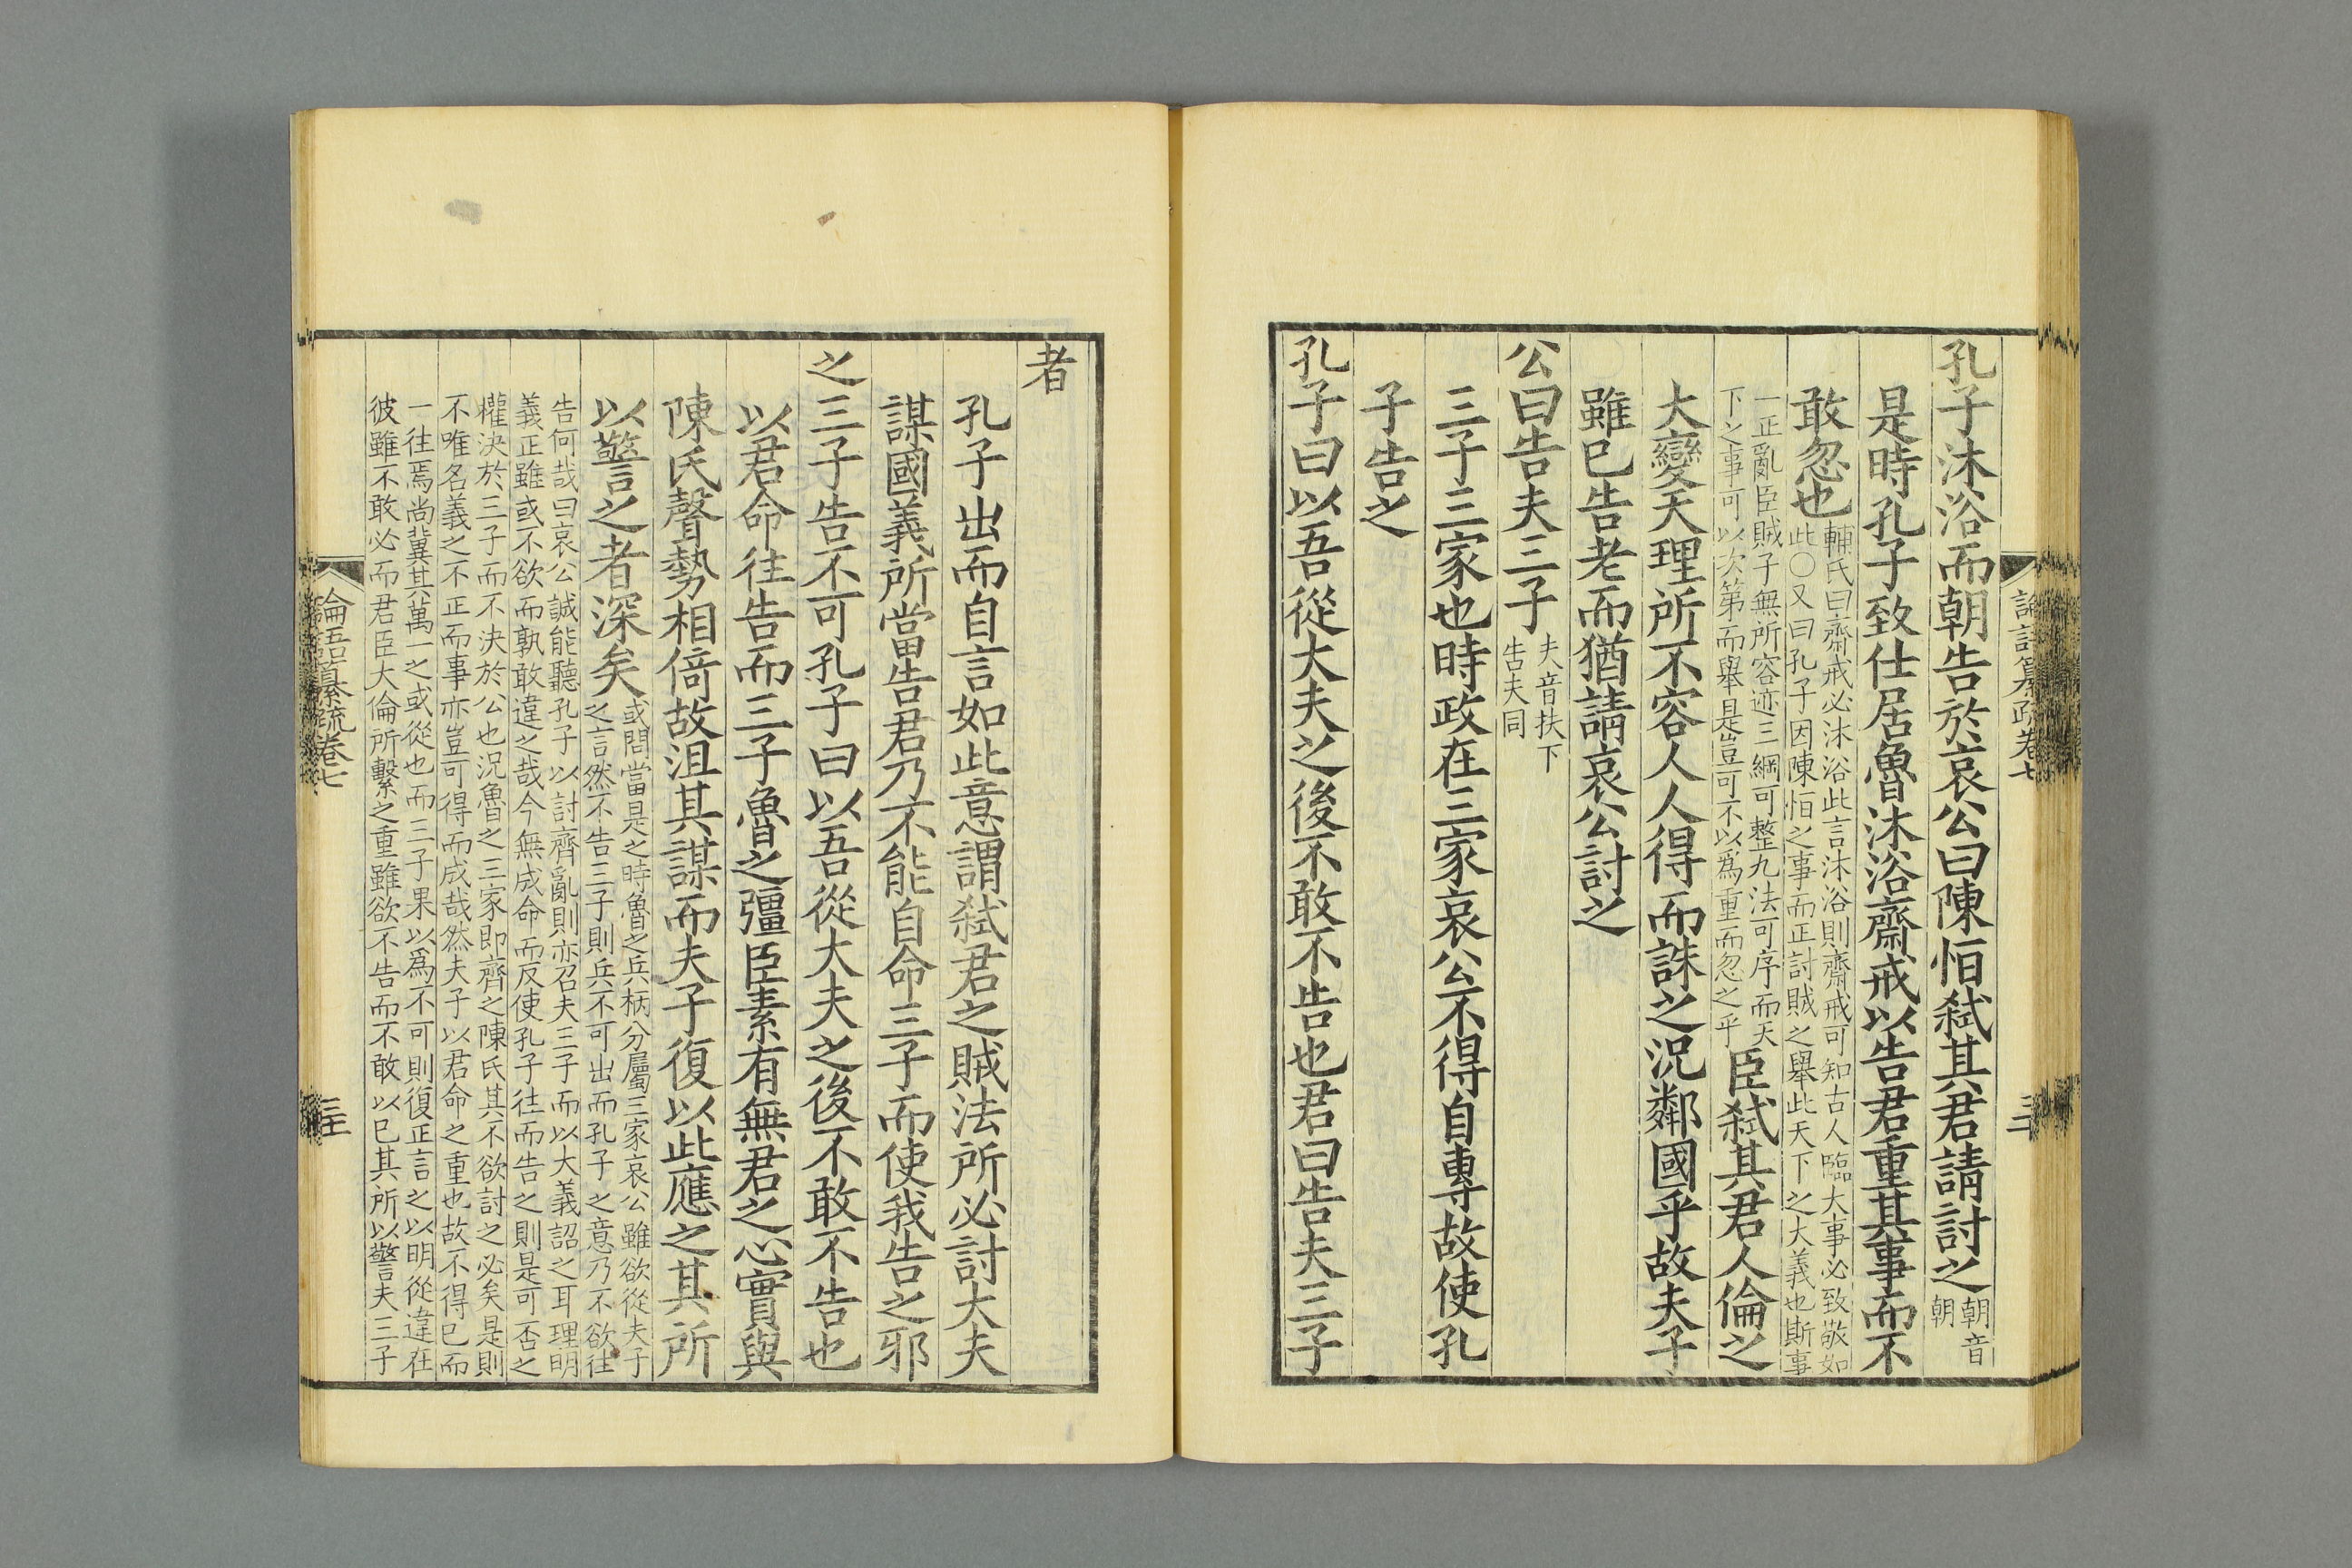 論語纂疏卷七
三
孔子沐浴而朝告於哀公曰陳恒弑其君請討之朝音
朝
是時孔子致仕居魯沐浴齋戒以告君重其事而不
敢忽也輔氏曰齋戒必沐浴此言沐浴則齋戒可知古人臨大事必致敬如
此〇又曰孔子因陳恒之事而正討賊之舉此天下之大義也斯事
一正亂臣賊子無所容迹三綱可整九法可序而天
下之事可以次第而舉是豈可不以爲重而忽之乎臣弑其君人倫之
大變天理所不容人人得而誅之況鄰國乎故夫子
雖已告老而猶請哀公討之
公曰告夫三子夫音扶下
告夫同
三子三家也時政在三家哀公不得自專故使孔
子告之
孔子曰以吾從大夫之後不敢不告也君曰告夫三子
者
孔子出而自言如此意謂弑君之賊法所必討大夫
謀國義所當告君乃不能自命三子而使我告之邪
之三子告不可孔子曰以吾從大夫之後不敢不告也
以君命往告而三子魯之彊臣素有無君之心實與
陳氏聲勢相倚故沮其謀而夫子復以此應之其所
以警之者深矣或問當是之時魯之兵柄分屬三家哀公雖欲從夫子
之言然不告三子則兵不可出而孔子之意乃不欲往
告何哉曰哀公誠能聽孔子以討齊亂則亦召夫三子而以大義詔之耳理明
義正雖或不欲而孰敢違之哉今無成命而反使孔子往而告之則是可否之
權決於三子而不決於公也況魯之三家即齊之陳氏其不欲討之必矣是則
不唯名義之不正而事亦豈可得而成哉然夫子以君命之重也故不得已而
一往焉尚冀其萬一之或從也而三子果以爲不可則復正言之以明從違在
彼雖不敢必而君臣大倫所繫之重雖欲不告而不敢以已其所以警夫三子
論語纂疏卷七